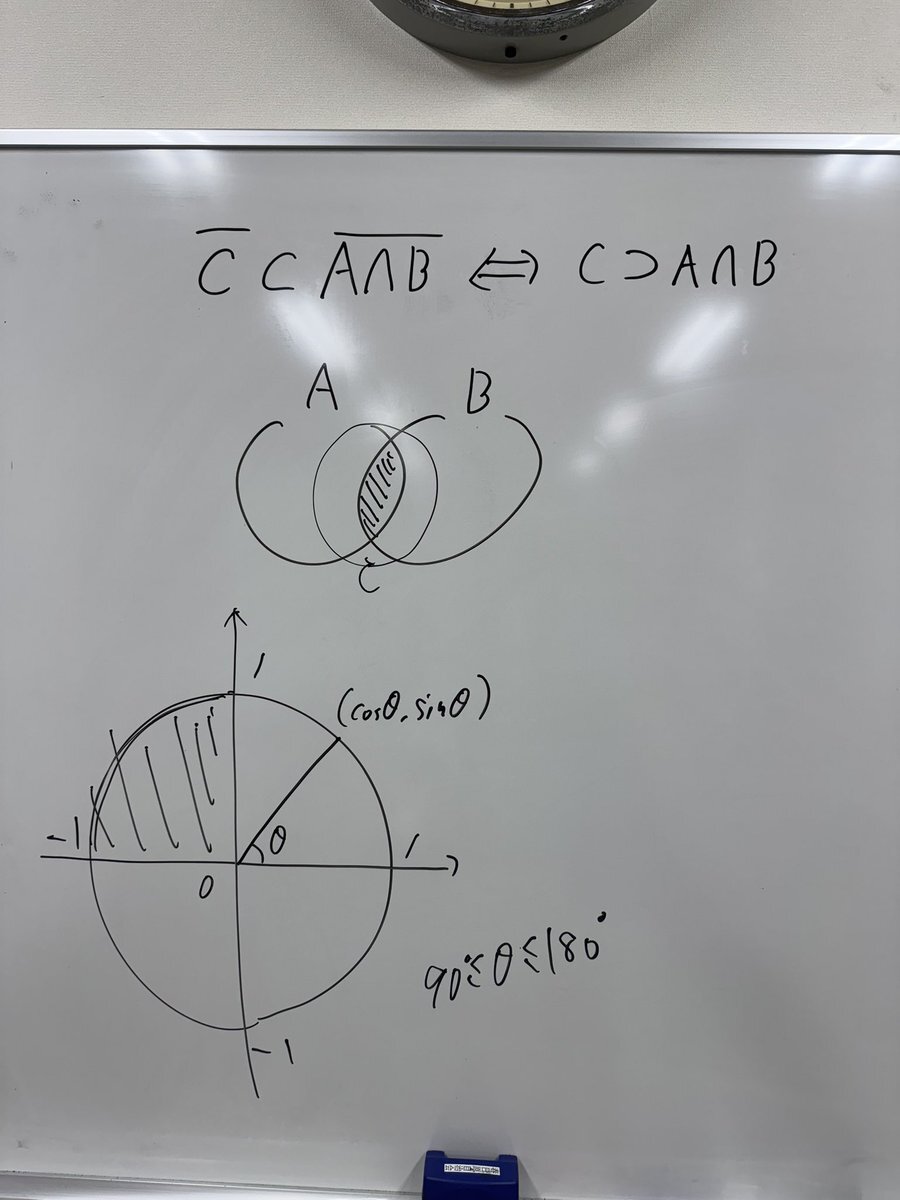 $\overline{C} \subset \overline{A \cap B} \Leftrightarrow C \supset A \cap B$
A B
C
1
(cosθ, sinθ)
-1 θ 1
0
90° ≦ θ ≦ 180°
-1